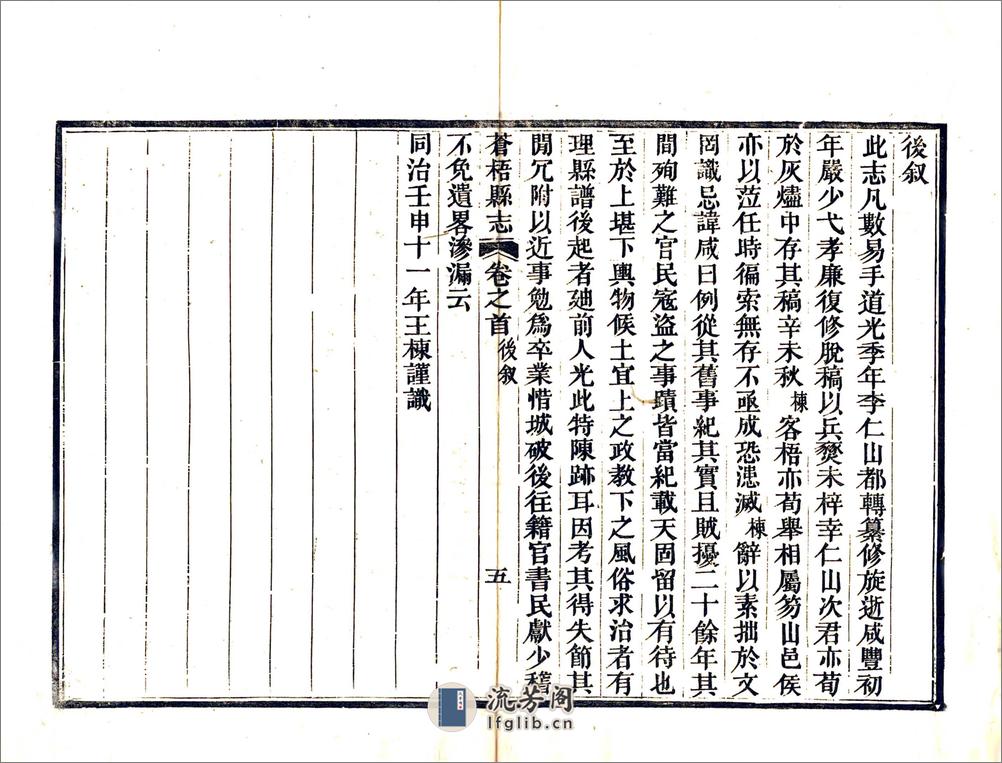 後叙
此志凡數易手道光季年李仁山都轉纂修旋逝咸豐初
年嚴少弋孝廉復修脫稿以兵燹未梓幸仁山次君亦荀
於灰燼中存其稿辛未秋棟客梧亦荀舉相屬笏山邑侯
亦以蒞任時徧索無存不亟成恐漶滅棟辭以素拙於文
罔識忌諱咸曰例從其舊事紀其實且賊擾二十餘年其
間殉難之官民寇盜之事蹟皆當紀載天固留以有待也
至於上堪下輿物候土宜上之政教下之風俗求治者有
理縣譜後起者廸前人光此特陳跡耳因考其得失節其
閒冗附以近事勉爲卒業惜城破後往籍官書民獻少稽
蒼梧縣志 卷之首 後叙 五
不免遺畧滲漏云
同治壬申十一年王棟謹識
流芳阁
lfglib.cn